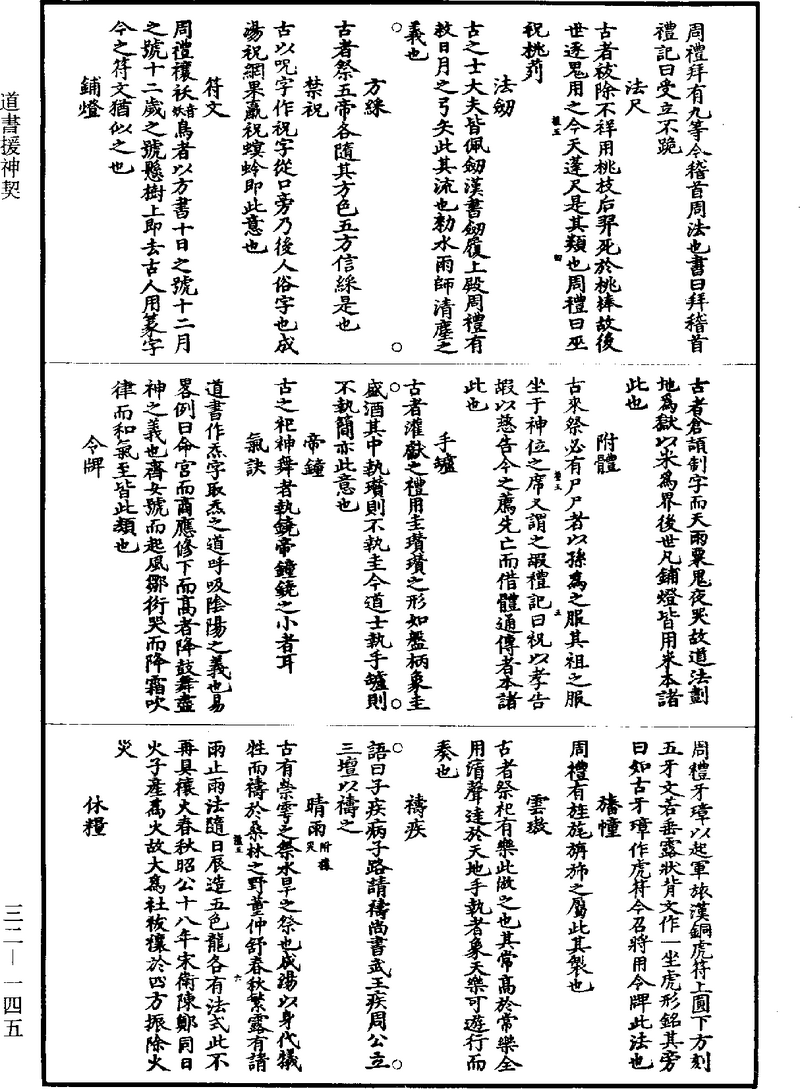 道書援神契
周禮拜有九等今稽首周法也書曰拜稽首
禮記曰受立不跪
法尺
古者祓除不祥用桃枝后羿死於桃棒故後
世逐鬼用之今天蓬尺是其類也周禮曰巫
祝桃茢
法劒
古之士大夫皆佩劒漢書劒履上殿周禮有
救日月之弓矢此其流也勑水雨師清塵之
義也
方綵
古者祭五帝各隨其方色五方信綵是也
禁祝
古以呪字作祝字從口旁乃後人俗字也成
湯祝網果蠃祝螟蛉即此意也
符文
周禮禳祅音妖鳥者以方書十日之號十二月
之號十二歲之號懸樹上即去古人用篆字
今之符文猶似之也
鋪燈
古者倉頡制字而天雨粟鬼夜哭故道法劃
地為獄以米為界後世凡鋪燈皆用米本諸
此也
附體
古來祭必有尸尸者以孫為之服其祖之服
坐于神位之席又謂之嘏禮記曰祝以孝告
嘏以慈告今之薦先亡而借體通傳者本諸
此也
手爐
古者灌獻之禮用圭瓚瓚之形如盤柄象圭
盛酒其中執瓚則不執圭今道士執手爐則
不執簡亦此意也
帝鐘
古之祀神舞者執鐃帝鐘鐃之小者耳
氣訣
道書作炁字取炁之道呼吸陰陽之義也易
畧例曰命宮而商應修下而高者降鼓舞盡
神之義也齊女號而起風鄒衍哭而降霜吹
律而和氣至皆此類也
令牌
周禮牙璋以起軍旅漢銅虎符上圓下方刻
五牙文若垂露狀背文作一坐虎形銘其旁
曰如古牙璋作虎符今召將用令牌此法也
旛幢
周禮有旌旄旂旆之屬此其製也
雲璈
古者祭祀有樂此倣之也其常高於常樂全
用清聲達於天地手執者象天樂可遊行而
奏也
禱疾
語曰子疾病子路請禱尚書武王疾周公立
三壇以禱之
晴雨附禳災
古有禜雩之祭水旱之祭也成湯以身代犧
牲而禱於桑林之野董仲舒春秋繁露有請
雨止雨法隨日辰造五色龍各有法式此不
再具禳火春秋昭公十八年宋衛陳鄭同日
火子產為火故大為社祓禳於四方振除火
災
休糧
三二—一四五